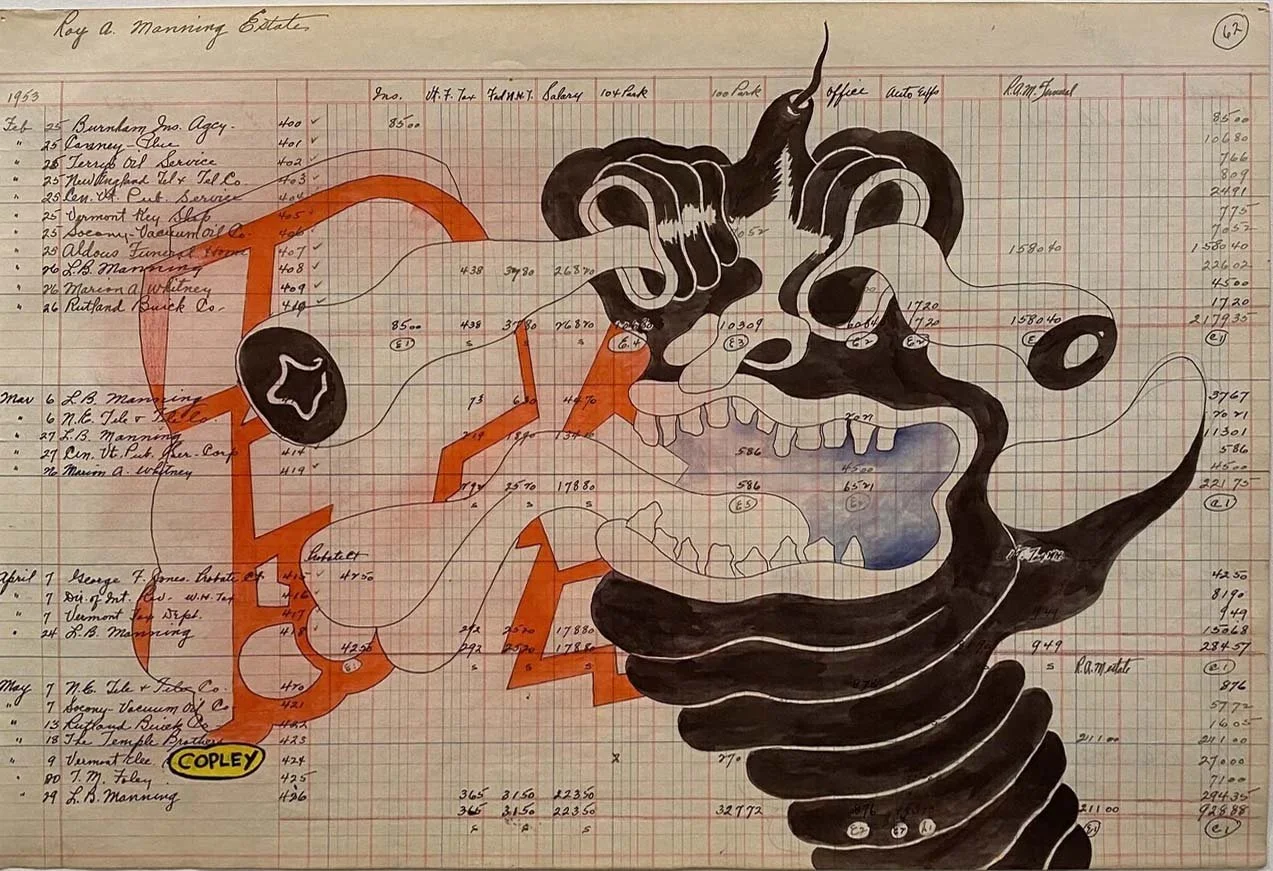 Roy A. Manning Estate
62
1953 Ins. Vt. F. Tax Fed W.H.T. Salary 104 Park 100 Park Office Auto Exps
Feb 25 Burnham Ins. Agcy. 400 ✓ 85 00 85 00
" 25 401 ✓ 106 80
" 25 Terry's Oil Service 402 ✓ 7 66
" 25 New England Tel & Tel Co. 403 ✓ 8 09
" 25 Cen. Vt. Pub. Service 404 ✓ 24 91
" 25 Vermont Key Shop 405 ✓ 7 75
" 25 Socony-Vacuum Oil Co. 406 ✓ 70 52
" 25 Aldous Funeral Home 407 ✓ 1580 40 1580 40
" 26 L.B. Manning 408 ✓ 4 38 37 80 268 20 226 02
" 26 Marion A. Whitney 409 ✓ 45 00
" 26 Rutland Buick Co. 410 ✓ 17 20 17 20
85 00 4 38 37 80 268 20 103 09 17 20 1580 40 2179 35
E1 s s s E4 E3 E2 E2 C1
Mar 6 L.B. Manning 73 6 30 44 70 37 67
" 6 N.E. Tele & Tele Co. 20 21
" 27 L.B. Manning 2 19 18 90 113 01
" 27 Cen. Vt. Pub. Ser. Corp 414 ✓ 5 86 5 86
" 26 Marion A. Whitney 419 ✓ 45 00 45 00
2 92 25 20 178 80 5 86 65 21 221 75
s s s E5 C1
Probate Ct
April 7 George F. Jones. Probate Ct. 415 42 50 42 50
" 7 Dir. of Int. Rev. - W.H. Tax 416 81 90
" 7 Vermont Tax Dept. 417 9 49
" 24 L.B. Manning 418 2 92 25 20 178 80 150 68
42 50 2 92 25 20 178 80 9 49 284 57
E1 s s s s C1
R.A.M estate
May 7 N.E. Tele & Tele Co. 420 8 76
" 7 Socony-Vacuum Oil Co 421 57 72
" 13 Rutland Buick Co- 422 16 05
" 18 The Temple Brothers 423 211 00 211 00
COPLEY
" 9 Vermont Elec 424 x 270 270 00
" 20 T.M. Foley 425 71 00
" 29 L.B. Manning 426 3 65 31 50 223 50 294 35
3 65 31 50 223 50 327 72 211 00 928 88
s s s E2 E2 C1